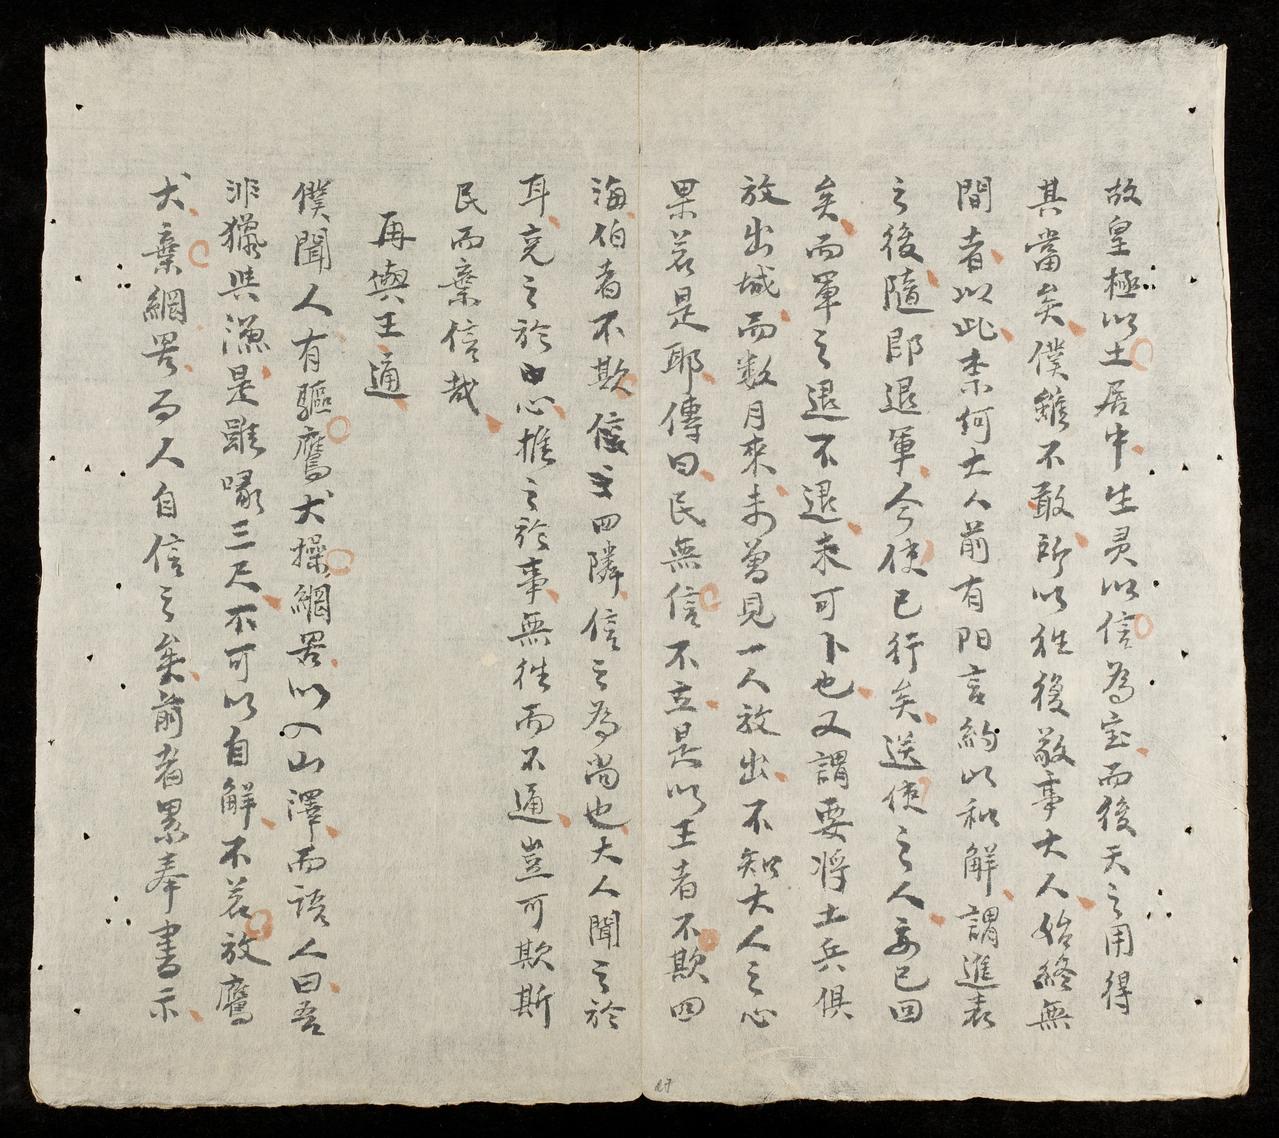 故皇極以土居中生灵以信為宝而後天之用得
其當矣僕雖不敢所以往復敬事大人始終無
間者以此柰何大人前有阳言約以和解謂進表
之後隨即退軍今使已行矣送使之人妄已回
矣而軍之退不退未可卜也又謂要将土兵俱
放出城而数月来未曾見一人放出不知大人之心
果若是耶傳曰民無信不立是以王者不欺四
海伯者不欺四隣信之為尚也大人聞之於
耳克之於心推之於事無往而不通豈可欺斯
民而棄信哉
再與王通
僕聞人有驅鷹犬操網罟以入山澤而語人曰吾
非獵與漁是雖喙三尺不可以自解不若放鷹
犬棄網罟而人自信之矣前者累奉書示
27